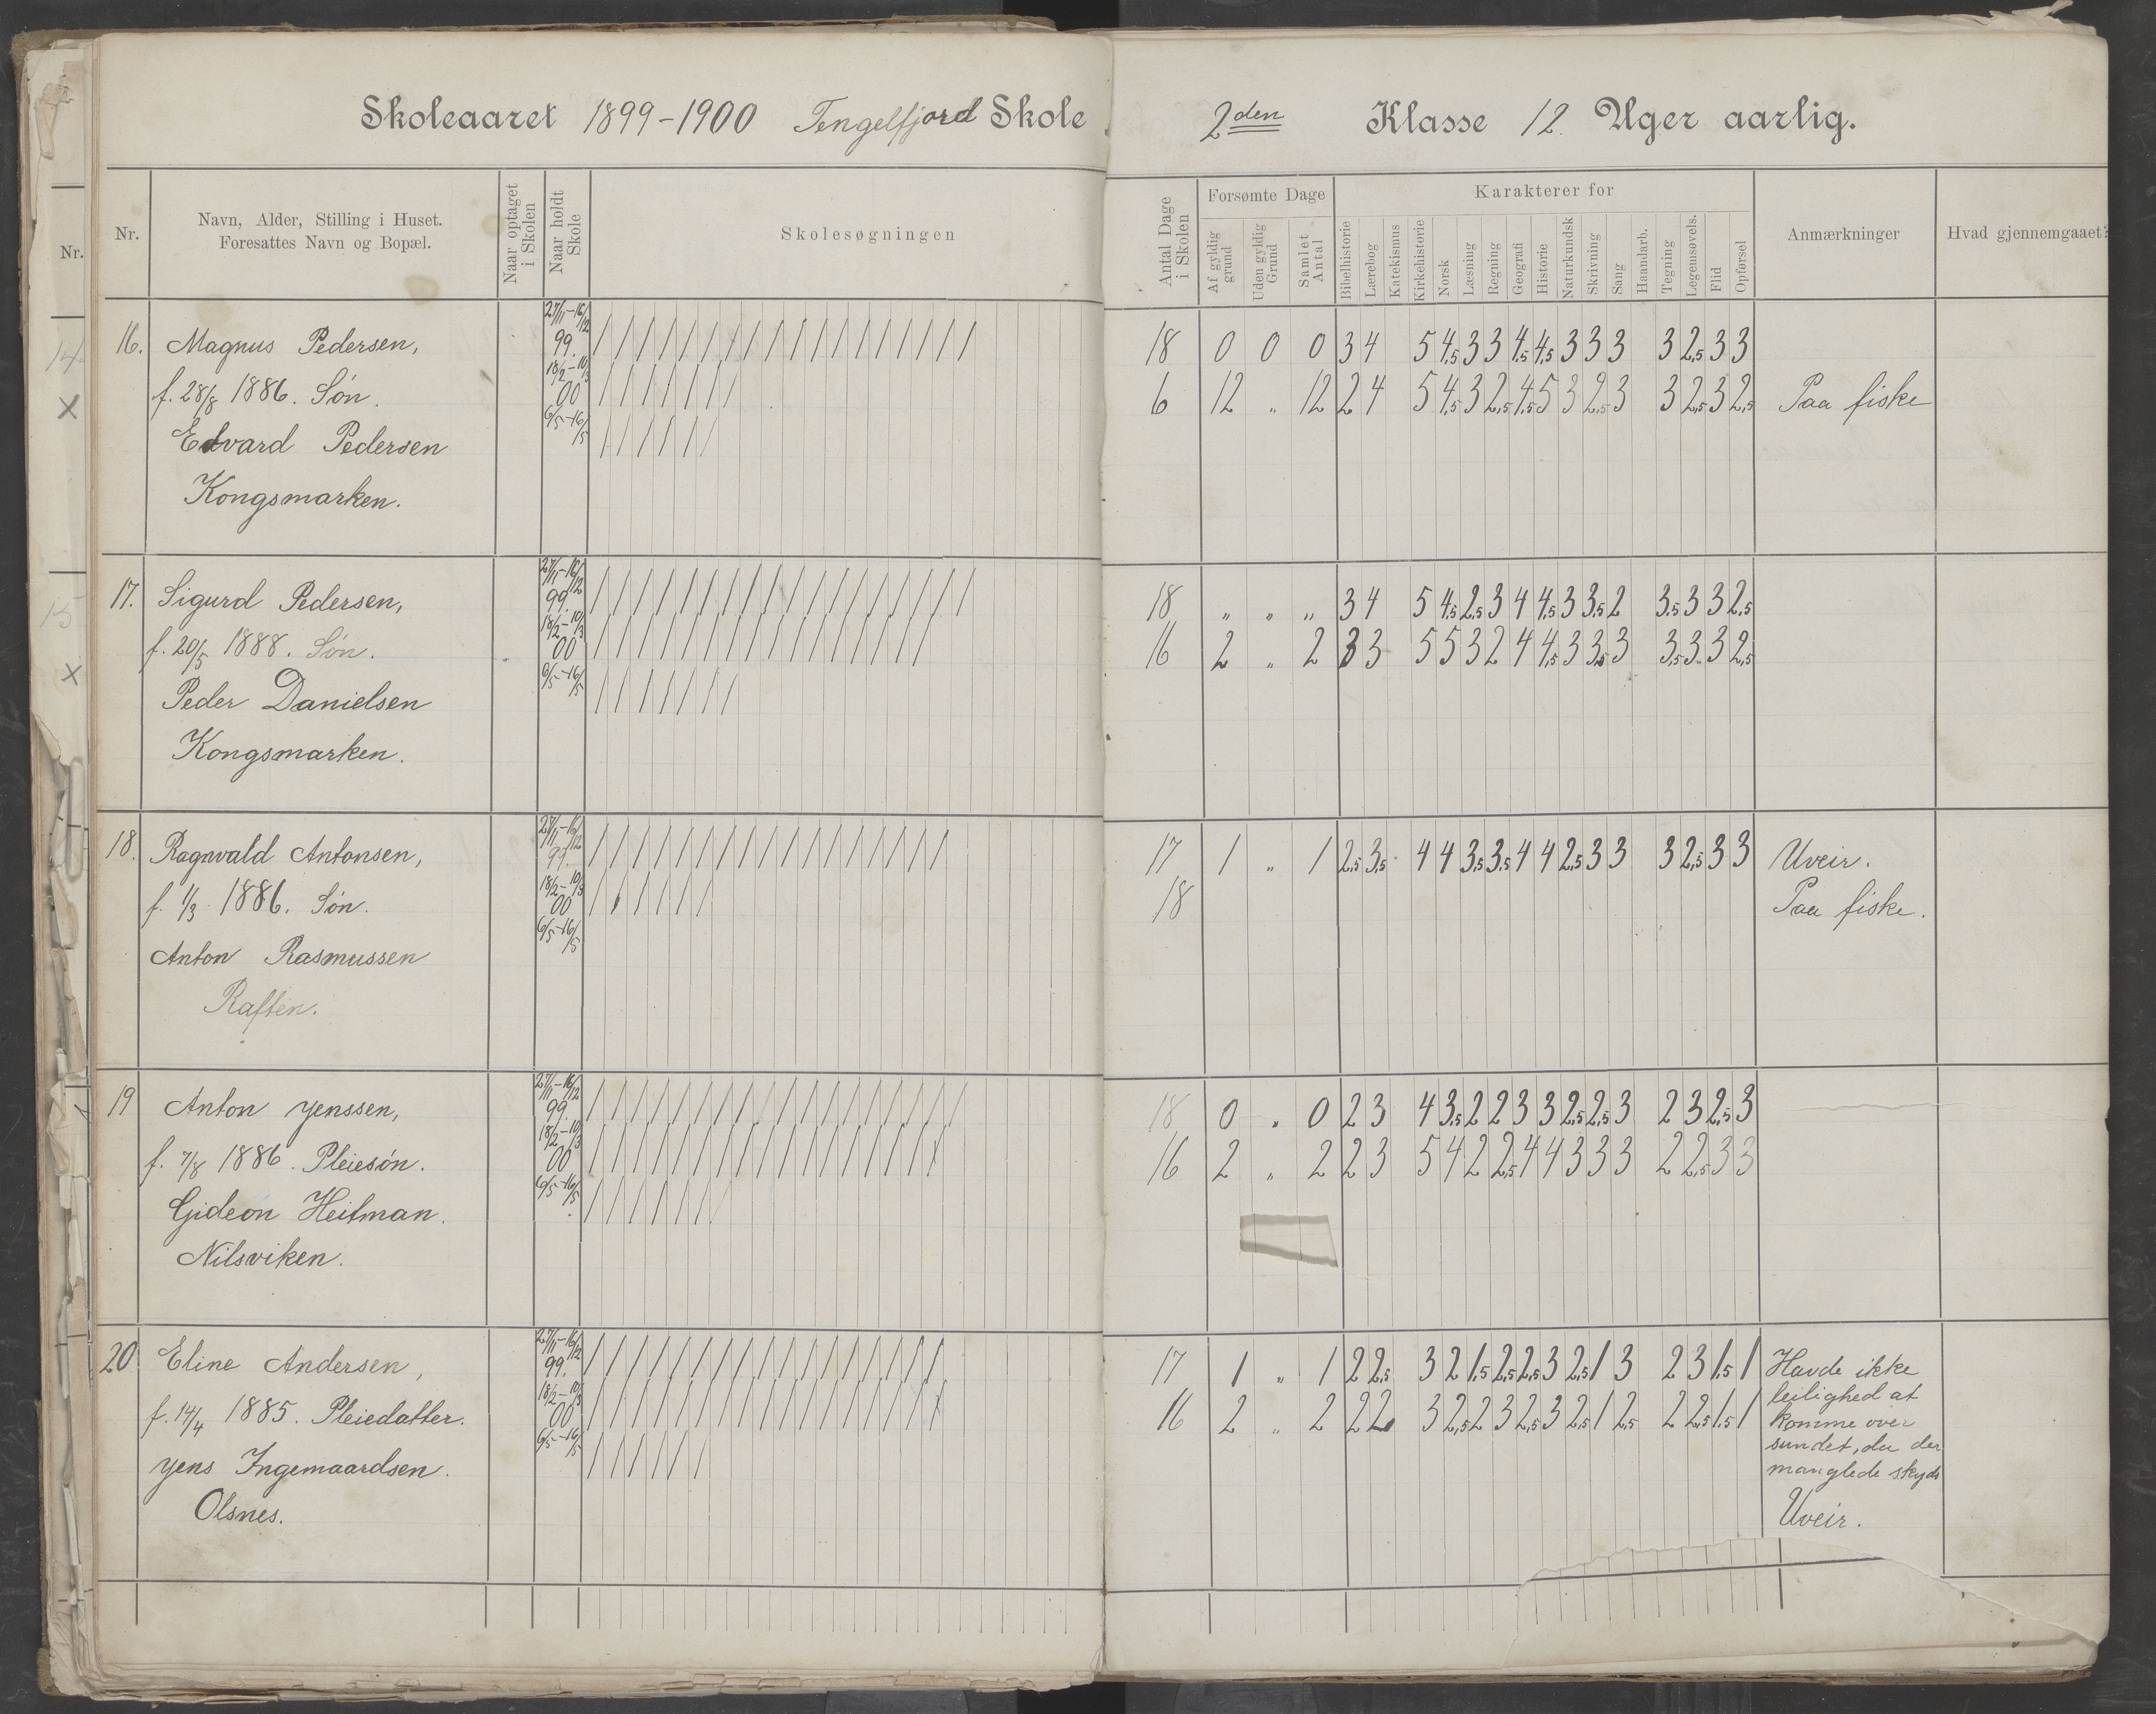 Skoleaaret 1899-1900 Tengelfjord Skole
2den Klasse 12 Uger aarlig.
Nr.
Nr.
Navn, Alder, Stilling i Huset.
Foresattes Navn og Bopæl.
Naar optaget i Skolen
Naar holdt Skole
Skolesøgningen
Antal Dage i Skolen
Forsømte Dage
Af gyldig grund
Uden gyldig Grund
Samlet Antal
Karakterer for
Bibelhistorie
Lærebog
Katekismus
Kirkehistorie
Norsk
Læsning
Regning
Geografi
Historie
Naturkundsk
Skrivning
Sang
Haandarb.
Tegning
Legemsøvels.
Flid
Opførsel
Anmærkninger
Hvad gjennemgaaet?
14
x
15
x
16. Magnus Pedersen, 27/11-16/12 99. 18 0 0 0 3 4 5 4,5 3 3 4,5 4,5 3 3 3 3 2,5 3 3
f. 28/8 1886. Søn. 18/2-10/3 00 6 12 „ 12 2 4 5 4,5 3 2,5 4,5 5 3 2,5 3 3 2,5 3 2,5 Paa fiske
Edvard Pedersen 6/5-16/5
Kongsmarken.
17. Sigurd Pedersen, 27/11-16/12 99. 18 „ „ „ 3 4 5 4,5 2,5 3 4 4,5 3 3,5 2 3,5 3 3 2,5
f. 20/5 1888. Søn. 18/2-10/3 00 16 2 „ 2 3 3 5 5 3 2 4 4,5 3 3,5 3 3,5 3 3 2,5
Peder Danielsen 6/5-16/5
Kongsmarken.
18. Ragnvald Antonsen, 27/11-16/12 99. 17 1 „ 1 2,5 3,5 4 4 3,5 3,5 4 4 2,5 3 3 3 2,5 3 3 Uveir.
f. 1/3 1886. Søn. 18/2-10/3 00 18 Paa fiske.
Anton Rasmussen 6/5-16/5
Raften.
19 Anton Jenssen, 27/11-16/12 99. 18 0 „ 0 2 3 4 3,5 2 2 3 3 2,5 2,5 3 2 3 2,5 3
f. 7/8 1886. Pleiesøn. 18/2-10/3 00 16 2 „ 2 2 3 5 4 2 2,5 4 4 3 3 3 2 2,5 3 3
Gideon Heitman. 6/5-16/5
Nilsviken.
20 Eline Andersen, 27/11-16/12 99. 17 1 „ 1 2 2,5 3 2 1,5 2,5 2,5 3 2,5 1 3 2 3 1,5 1 Havde ikke
leilighed at
f. 14/4 1885. Pleiedatter. 18/2-10/3 00 16 2 „ 2 2 2 3 2,5 2 3 2,5 3 2,5 1 2,5 2 2,5 1,5 1 komme over
sundet, da der
Jens Ingemaardsen. 6/5-16/5 manglede skyds
Olsnes. Uveir.